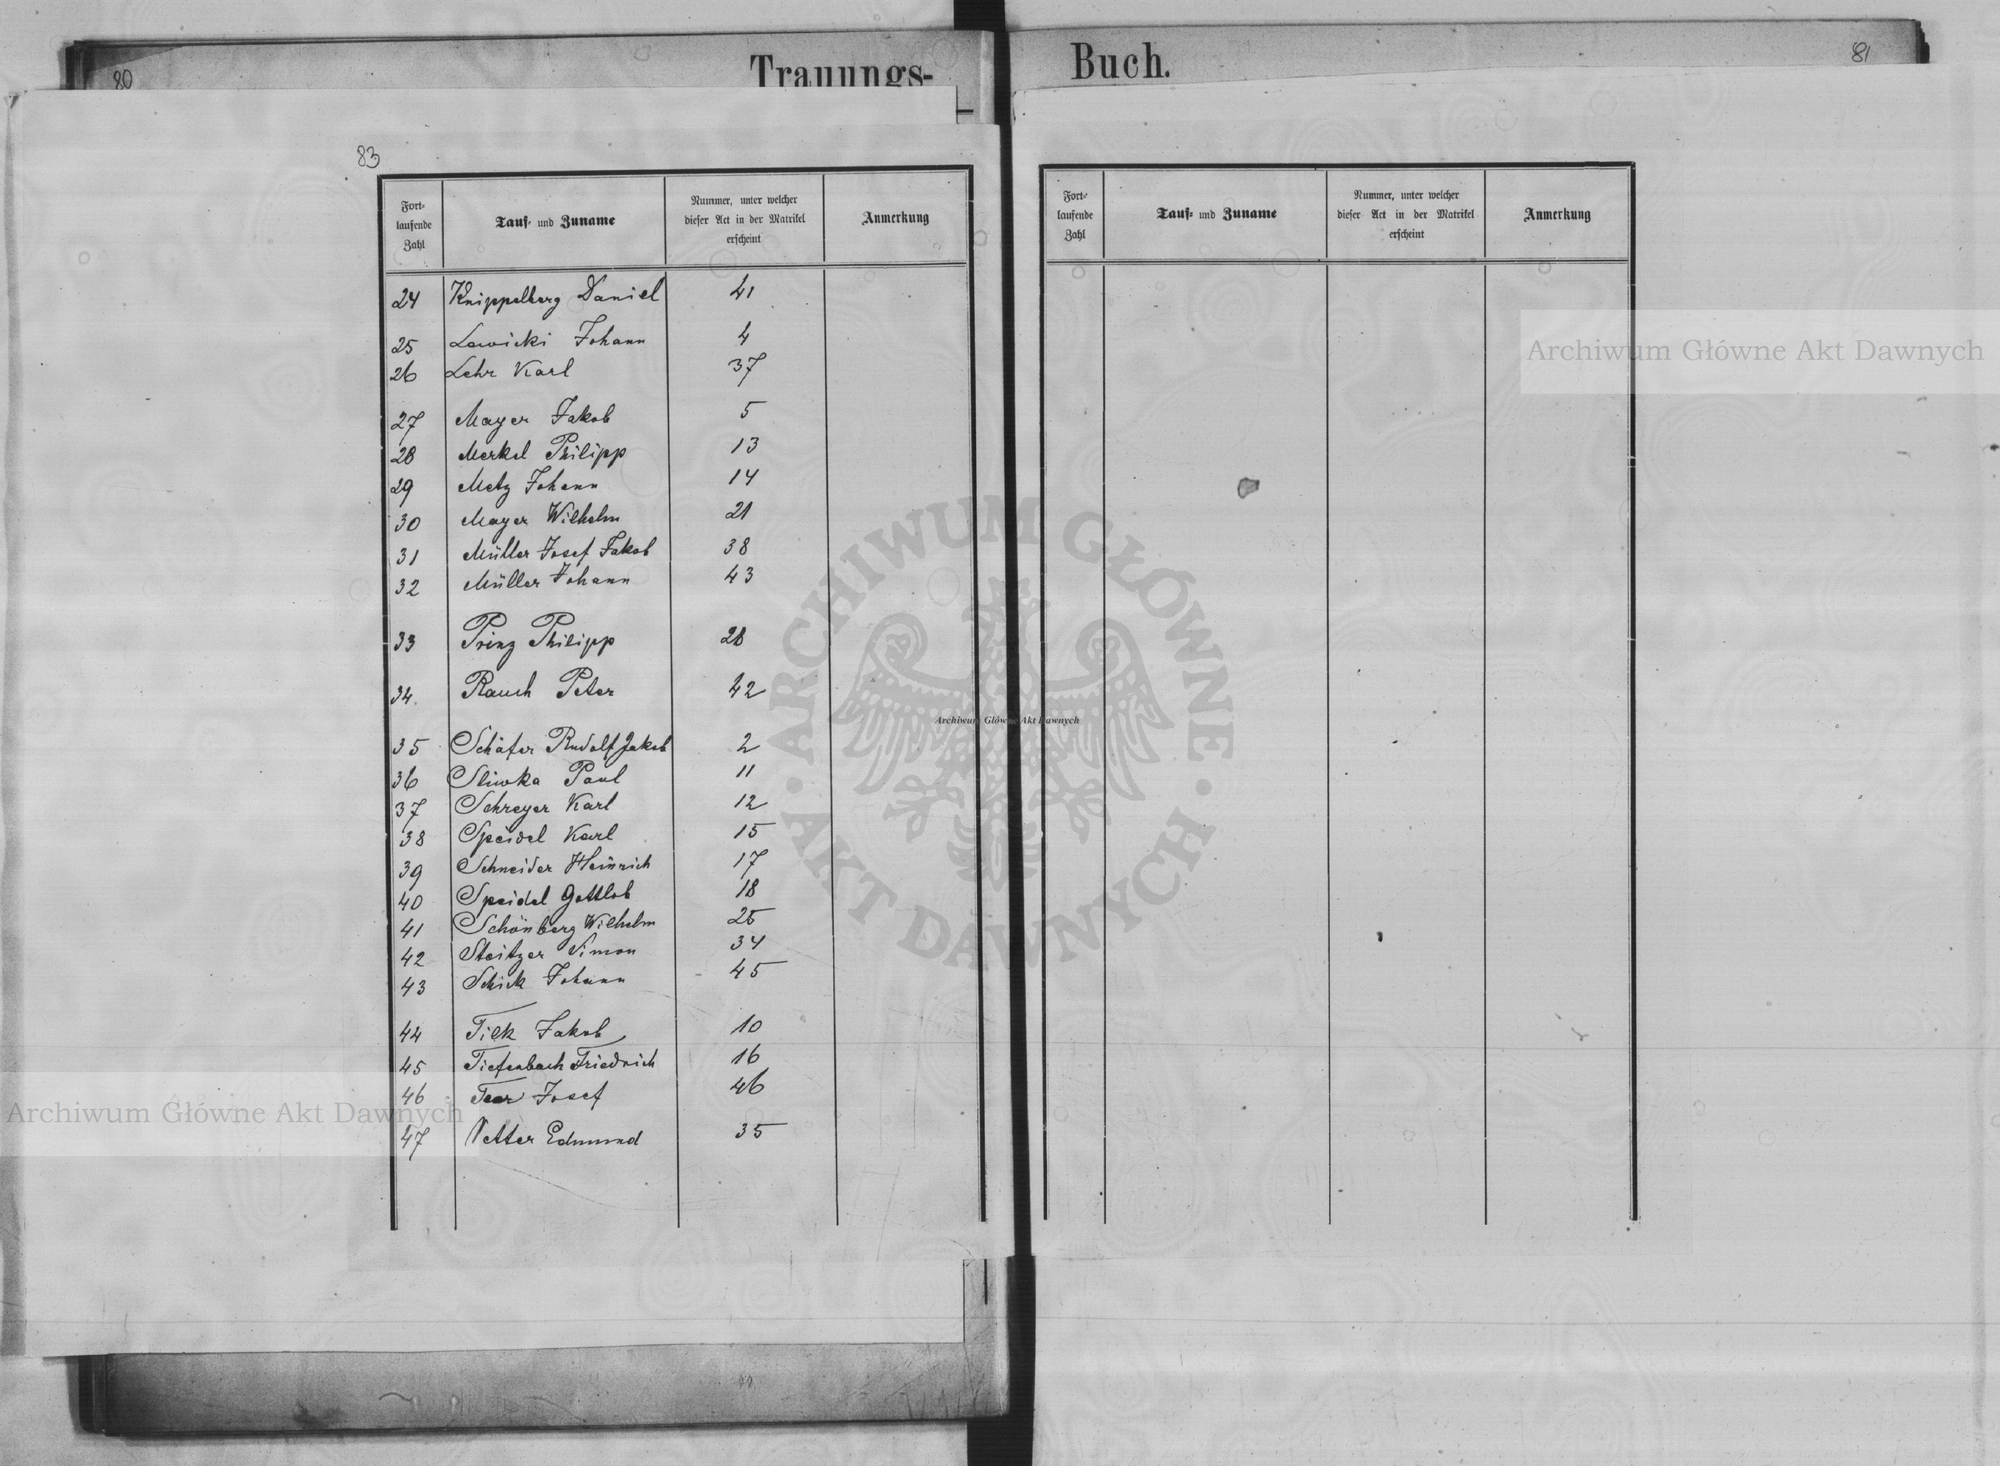 80
Trauungs-
Buch.
81
83
Fort-
laufende
Zahl
Tauf- und Zuname
Nummer, unter welcher
dieser Act in der Matrikel
erscheint
Anmerkung
24 Knippelberg Daniel 41
25 Lewicki Johann 4
26 Lehr Karl 37
27 Mayer Jakob 5
28 Merkel Philipp 13
29 Metz Johann 14
30 Mayer Wilhelm 21
31 Müller Josef Jakob 38
32 Müller Johann 43
33 Prinz Philipp 28
34 Rauch Peter 42
35 Schäfer Rudolf Jakob 2
36 Sliwka Paul 11
37 Schreyer Karl 12
38 Speidel Karl 15
39 Schneider Heinrich 17
40 Speidel Gottlob 18
41 Schönberg Wilhelm 25
42 Steitzer Simon 34
43 Schick Johann 45
44 Tilk Jakob 10
45 Tiefenbach Friedrich 16
46 Josef 46
47 Vetter Edmund 35
Fort-
laufende
Zahl
Tauf- und Zuname
Nummer, unter welcher
dieser Act in der Matrikel
erscheint
Anmerkung
Archiwum Główne Akt Dawnych
ARCHIWUM GŁÓWNE
AKT DAWNYCH
Archiwum Główne Akt Dawnych
Archiwum Główne Akt Dawnych